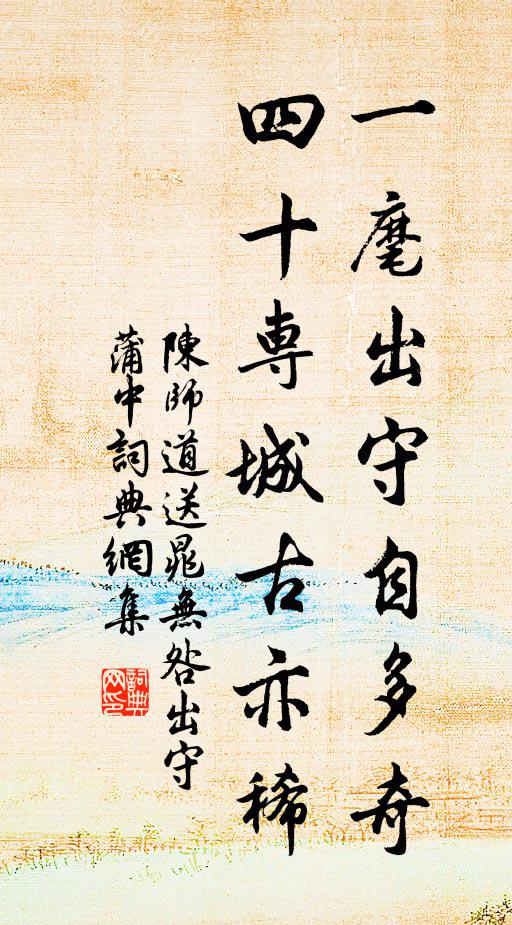 一麾出守自多奇
四十専城古亦稀
陳師道送晁無咎出守
蒲中詞典網集
詞典网印